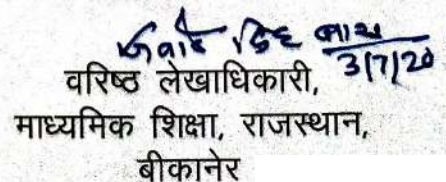 3/7/20
वरिष्ठ लेखाधिकारी,
माध्यमिक शिक्षा, राजस्थान,
बीकानेर